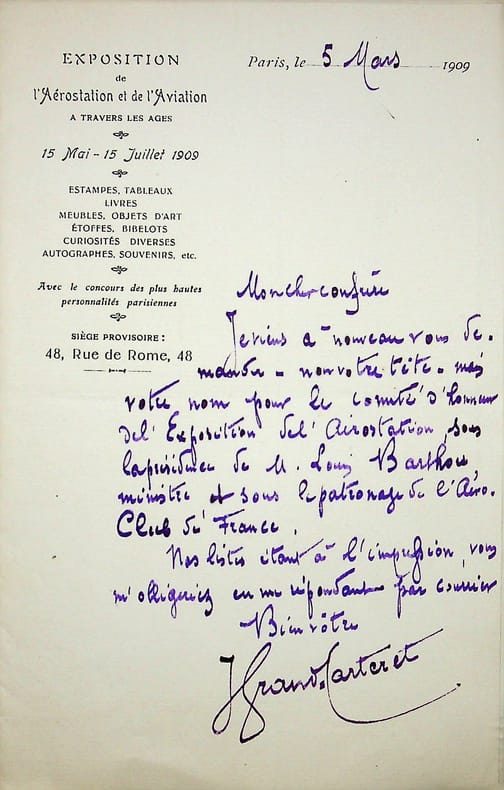 EXPOSITION
de
l'Aérostation et de l'Aviation
A TRAVERS LES AGES
15 Mai - 15 Juillet 1909
ESTAMPES, TABLEAUX
LIVRES
MEUBLES, OBJETS D'ART
ÉTOFFES, BIBELOTS
CURIOSITÉS DIVERSES
AUTOGRAPHES, SOUVENIRS, etc.
Avec le concours des plus hautes
personnalités parisiennes
SIÈGE PROVISOIRE :
48, Rue de Rome, 48
Paris, le 5 Mars 1909
Mon cher confrère
Je viens à nouveau vous de-
mander - non votre tête - mais
votre nom pour le comité d'honneur
de l'Exposition de l'Aérostation, sous
la présidence de M. Louis Barthou,
ministre et sous le patronage de l'Aéro-
Club de France.
Nos listes étant à l'impression, vous
m'obligeriez en me répondant par courrier
Bien vôtre
J Grand-Carteret